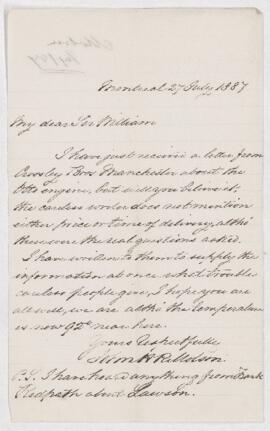 Montreal 27 July 1887
My dear Sir William
I have just received a letter from
Crossley Bros Manchester about the
Otto engine, but will you believe it,
the careless writer does not mention
either price or time of delivery, altho'
these were the real questions asked.
I have written to them to supply the
information at once what trouble
careless people give, I hope you are
all well, we are altho' the temperature
is now 92° near here.
Yours Respectfully
John H R Molson
P.S. I havn't heard anything from Frank
Redpath about Lawson.